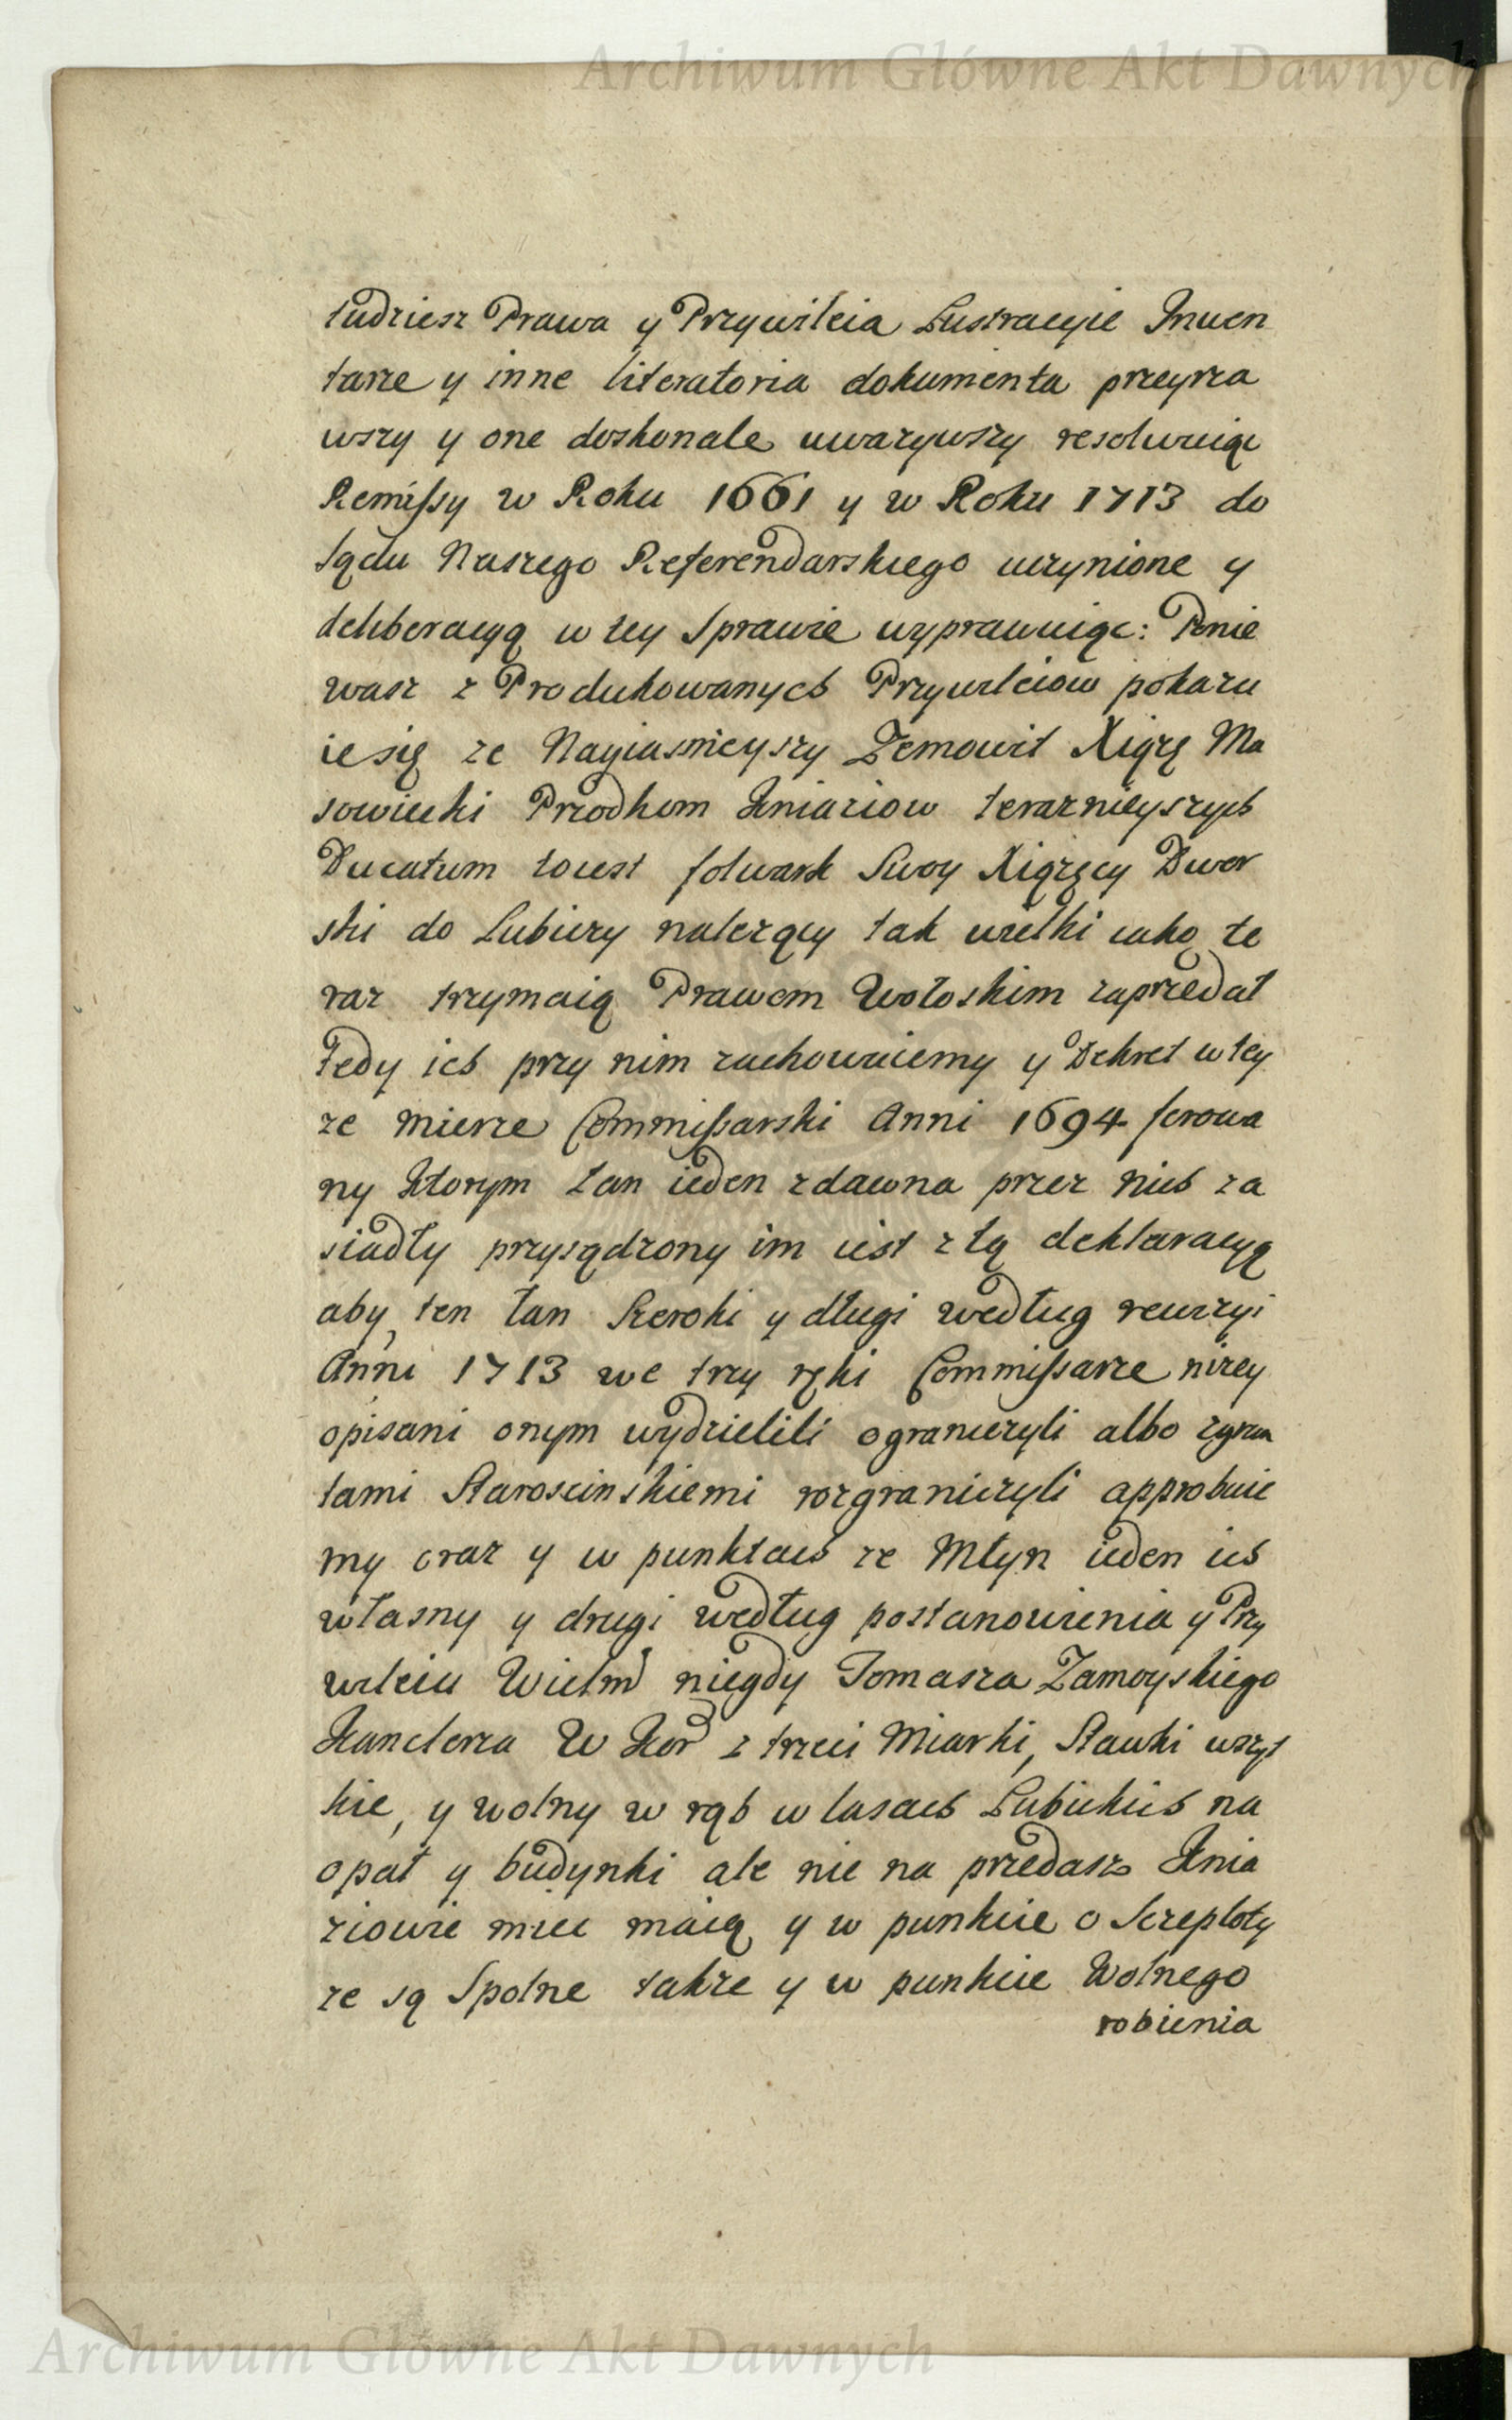 Archiwum Główne Akt Dawnych
tudziesz Prawa y Przywileia Lustracyie Inwen
tarze y inne literatoria dokumenta przeyrza
wszy y one doskonale uwazywszy resolwuiąc
Remissy w Roku 1661 y w Roku 1713 do
Sądu Naszego Referendarskiego uczynione y
deliberacyą w tey Sprawie wyprawuiąc: Ponie
wasz z Produkowanych Przywileiow pokazu
ie się ze Nayiasnieyszy Zemowit Xiążę Ma
sowiecki Przodkom Kniaziow teraznieyszych
Ducatum toiest folwark Swoy Xiążęcy Dwor
ski do Lubiczy nalezący tak wielki iako te
raz trzymaią Prawem Wołoskim zaprzedał
Tedy ich przy nim zachowuiemy y Dekret w tey
ze mierze Commissarski Anni 1694 ferowa
ny Ktorym Łan ieden zdawna przez nich za
siadły przysądzony im iest z tą deklaracyą
aby ten Łan Szeroki y długi według rewizyi
Anni 1713 we trzy ręki Commissarze nizey
opisani onym wydzielili ograniczyli albo zgrun
tami Staroscinskiemi rozgraniczyli approbuie
my oraz y w punktach ze Młyn ieden ich
własny y drugi według postanowienia y Przy
wileiu Wielm niegdy Tomasza Zamoyskiego
Kanclerza W Kor z trzeci Miarki, Stawki wszyt
kie, y wolny w rąb w lasach Lubickich na
opał y budynki ale nie na przedasz Knia
ziowie miec maią y w punkcie o Szeploty
ze są Spolne takze y w punkcie Wolnego
robienia
Archiwum Główne Akt Dawnych